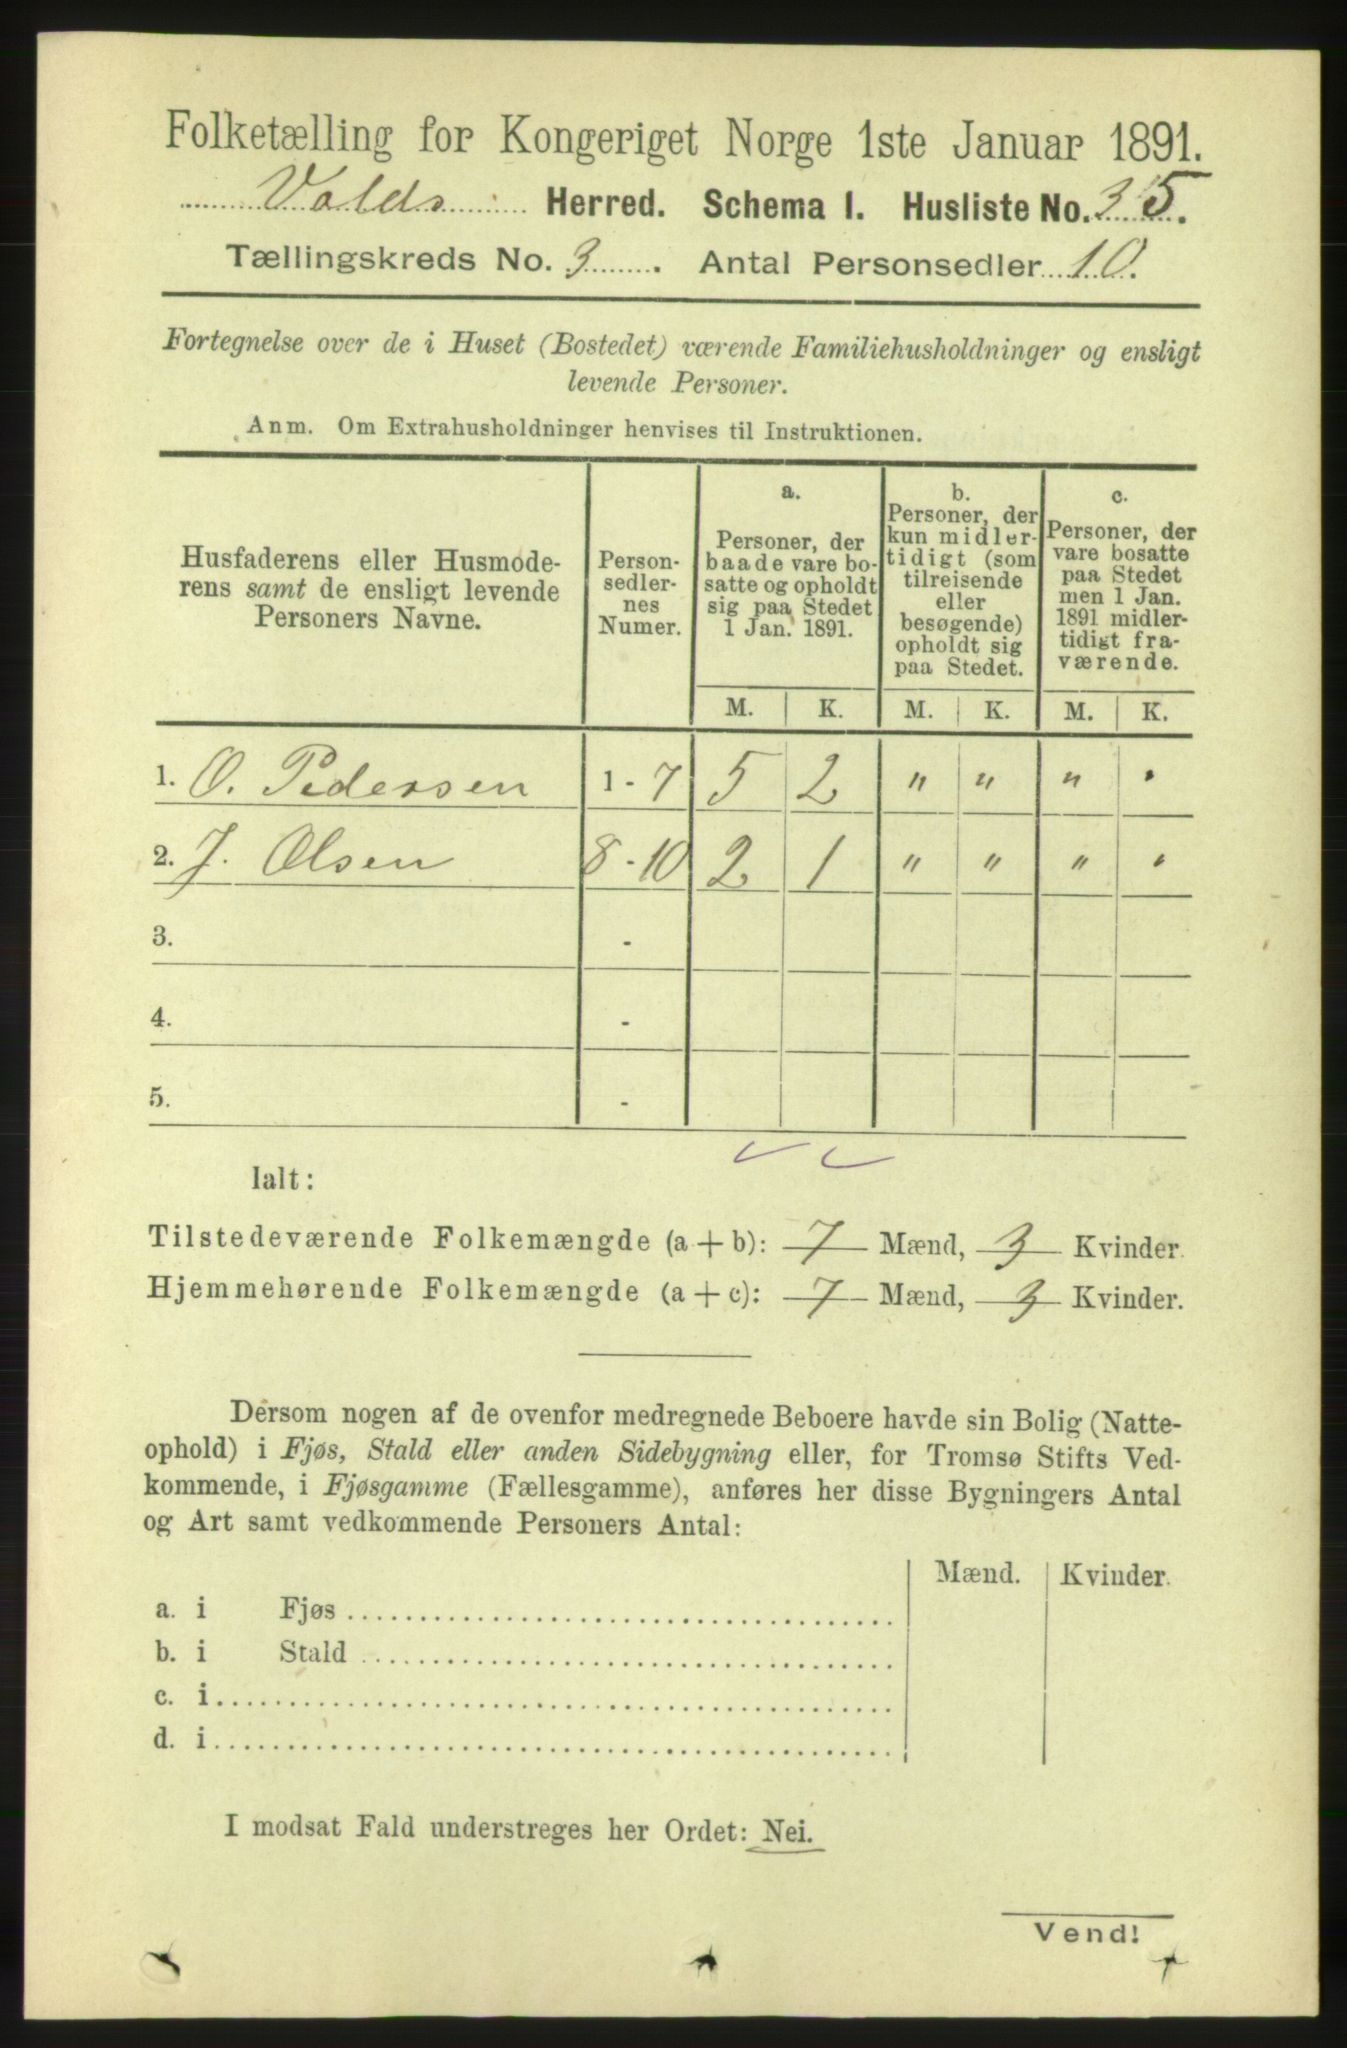 Folketælling for Kongeriget Norge 1ste Januar 1891.
Volds Herred. Schema I. Husliste No. 35.
Tællingskreds No. 3. Antal Personsedler 10.
Fortegnelse over de i Huset (Bostedet) værende Familiehusholdninger og ensligt
levende Personer.
Anm. Om Extrahusholdninger henvises til Instruktionen.
Husfaderens eller Husmode-
rens samt de ensligt levende
Personers Navne.
Person-
sedler-
nes
Numer.
a.
Personer, der
baade vare bo-
satte og opholdt
sig paa Stedet
1 Jan. 1891.
b.
Personer, der
kun midler-
tidigt (som
tilreisende
eller
besøgende)
opholdt sig
paa Stedet.
c.
Personer, der
vare bosatte
paa Stedet
men 1 Jan.
1891 midler-
tidigt fra-
værende.
M. K. M. K. M. K.
1. O. Pedersen 1 - 7 5 2 " " " "
2. J. Olsen 8 - 10 2 1 " " " "
3. -
4. -
5. -
Ialt:
Tilstedeværende Folkemængde (a + b): 7 Mænd, 3 Kvinder.
Hjemmehørende Folkemængde (a + c): 7 Mænd, 3 Kvinder.
Dersom nogen af de ovenfor medregnede Beboere havde sin Bolig (Natte-
ophold) i Fjøs, Stald eller anden Sidebygning eller, for Tromsø Stifts Ved-
kommende, i Fjøsgamme (Fællesgamme), anføres her disse Bygningers Antal
og Art samt vedkommende Personers Antal:
Mænd. Kvinder.
a. i Fjøs
b. i Stald
c. i
d. i
I modsat Fald understreges her Ordet: Nei.
Vend!